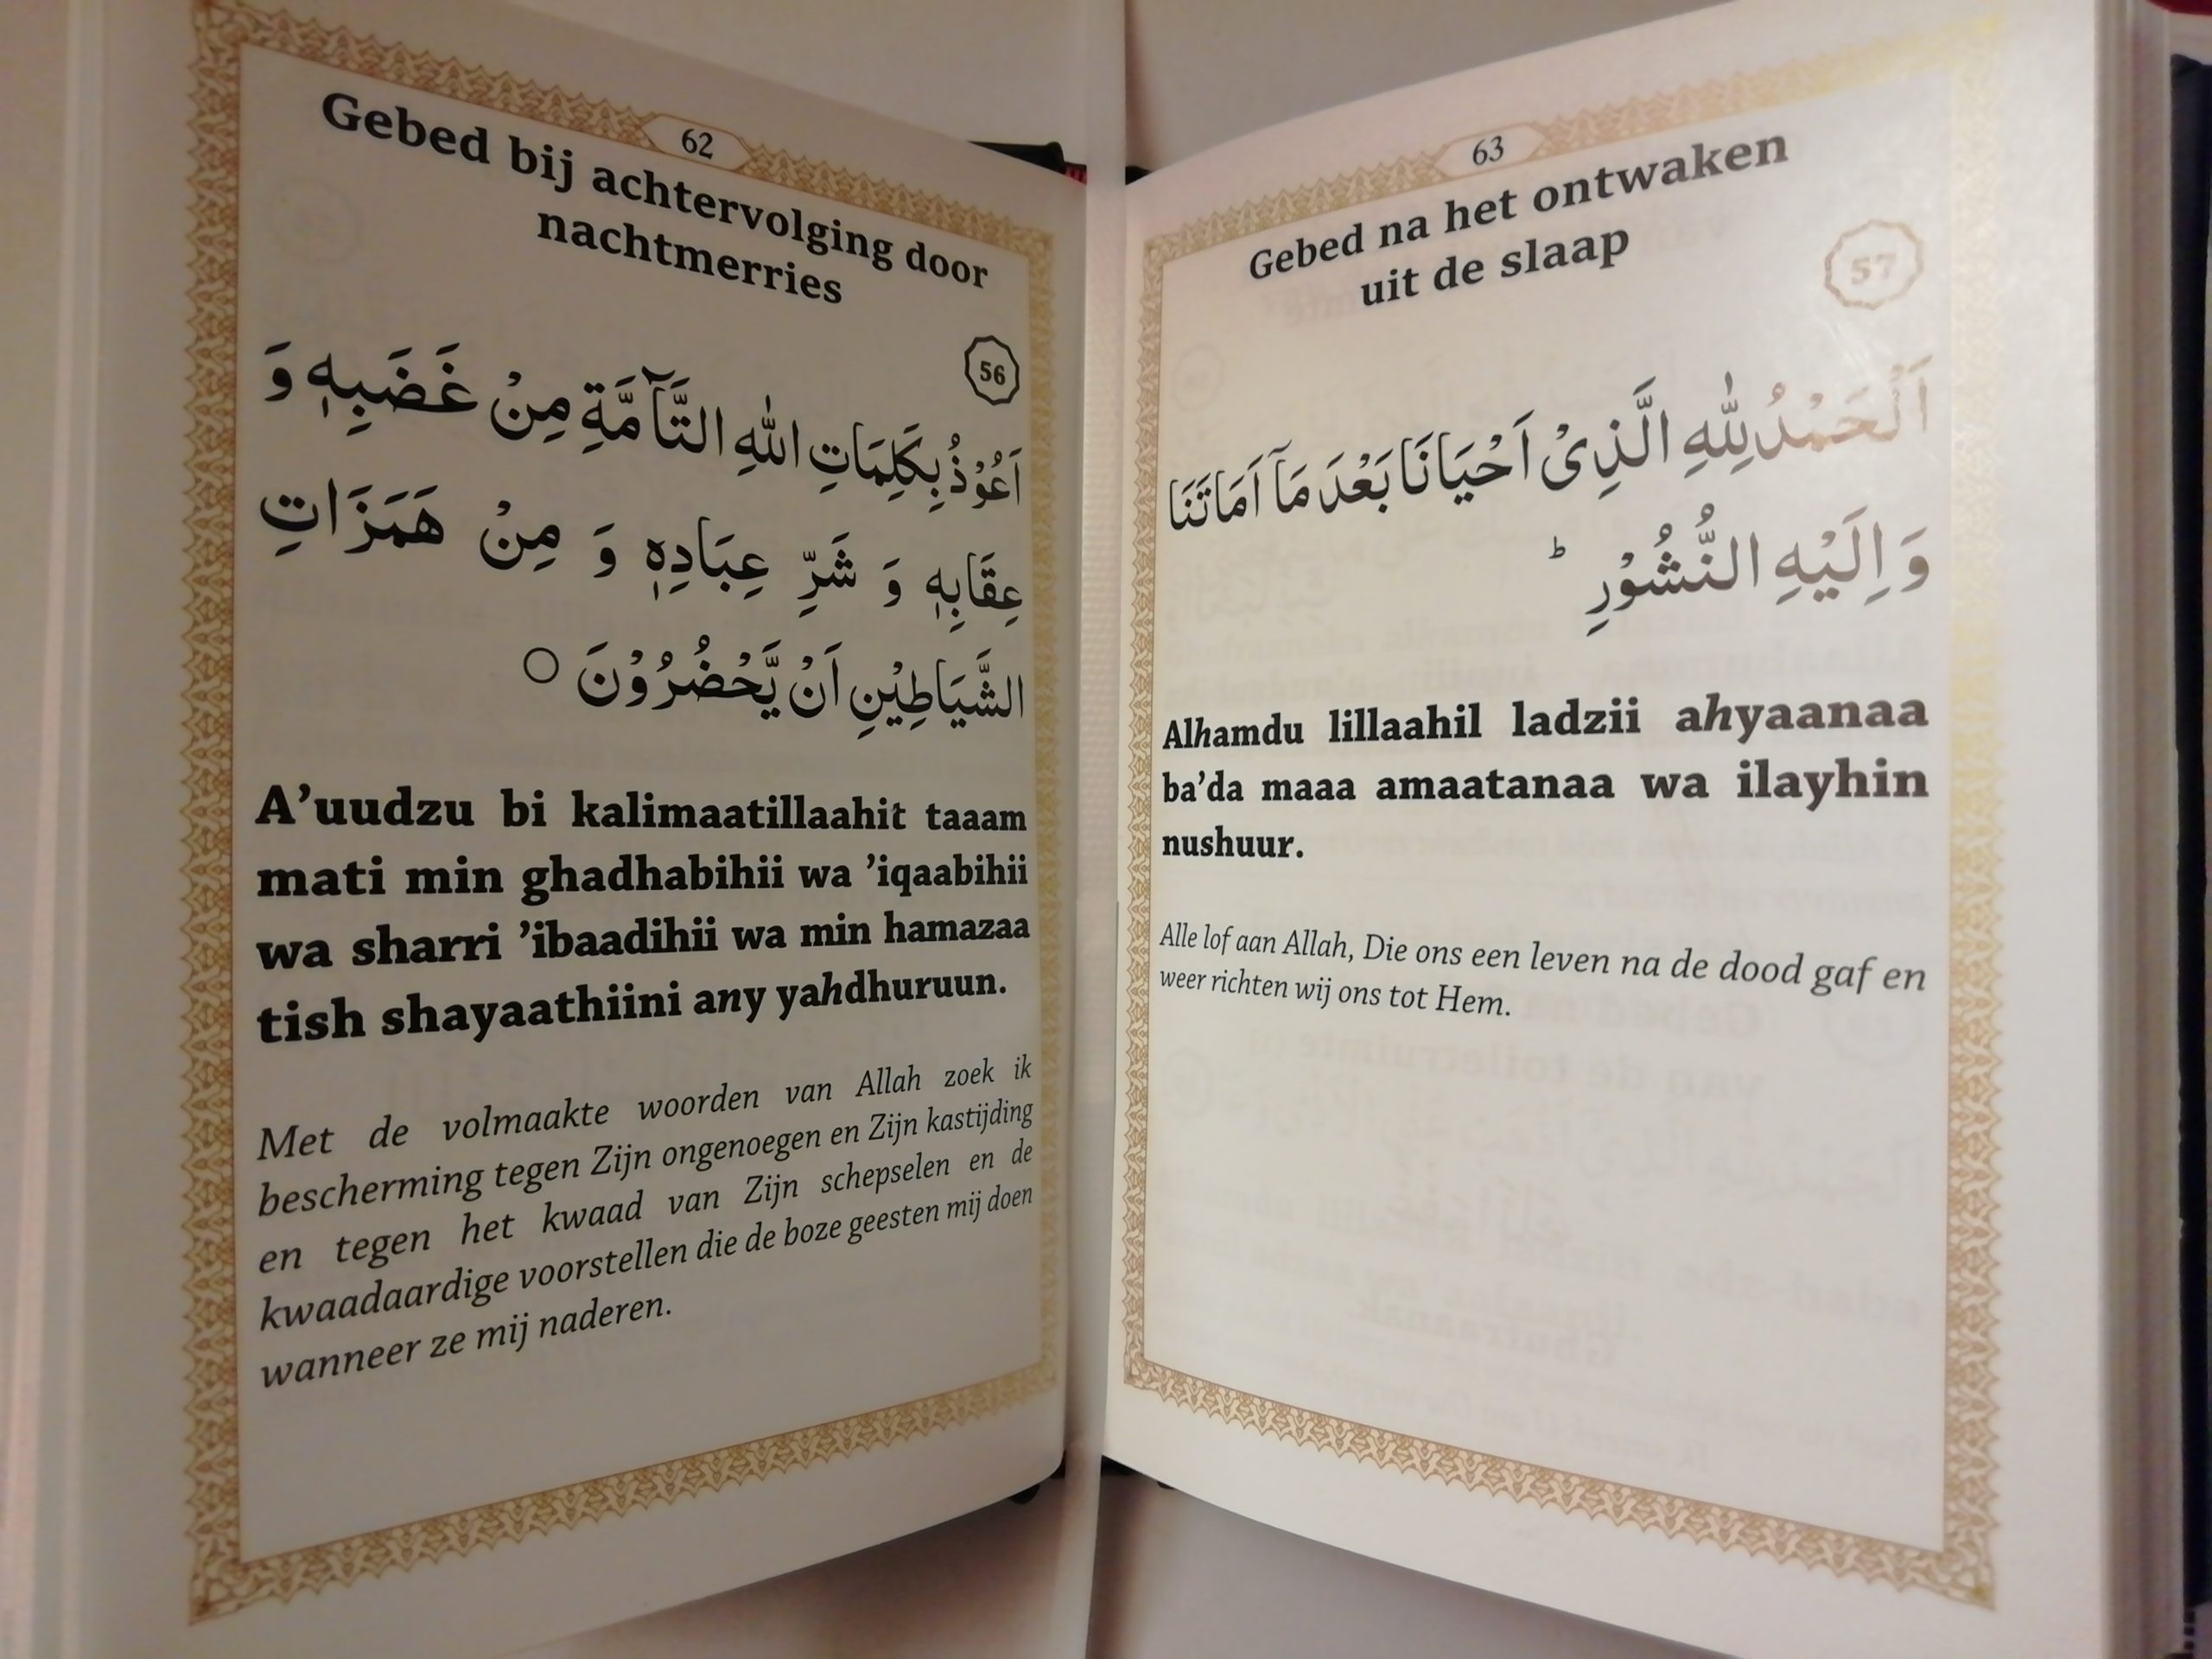 62
Gebed bij achtervolging door
nachtmerries
56
اَعُوْذُ بِكَلِمَاتِ اللّٰهِ التَّآمَّةِ مِنْ غَضَبِهٖ وَ
عِقَابِهٖ وَ شَرِّ عِبَادِهٖ وَ مِنْ هَمَزَاتِ
الشَّيَاطِيْنِ اَنْ يَّحْضُرُوْنَ ○
A’uudzu bi kalimaatillaahit taaam
mati min ghadhabihii wa ’iqaabihii
wa sharri ’ibaadihii wa min hamazaa
tish shayaathiini any yahdhuruun.
Met de volmaakte woorden van Allah zoek ik
bescherming tegen Zijn ongenoegen en Zijn kastijding
en tegen het kwaad van Zijn schepselen en de
kwaadaardige voorstellen die de boze geesten mij doen
wanneer ze mij naderen.
63
Gebed na het ontwaken
uit de slaap
57
اَلْحَمْدُ لِلّٰهِ الَّذِىْ اَحْيَانَا بَعْدَ مَآ اَمَاتَنَا
وَ اِلَيْهِ النُّشُوْرِ ؕ
Alhamdu lillaahil ladzii ahyaanaa
ba’da maaa amaatanaa wa ilayhin
nushuur.
Alle lof aan Allah, Die ons een leven na de dood gaf en
weer richten wij ons tot Hem.